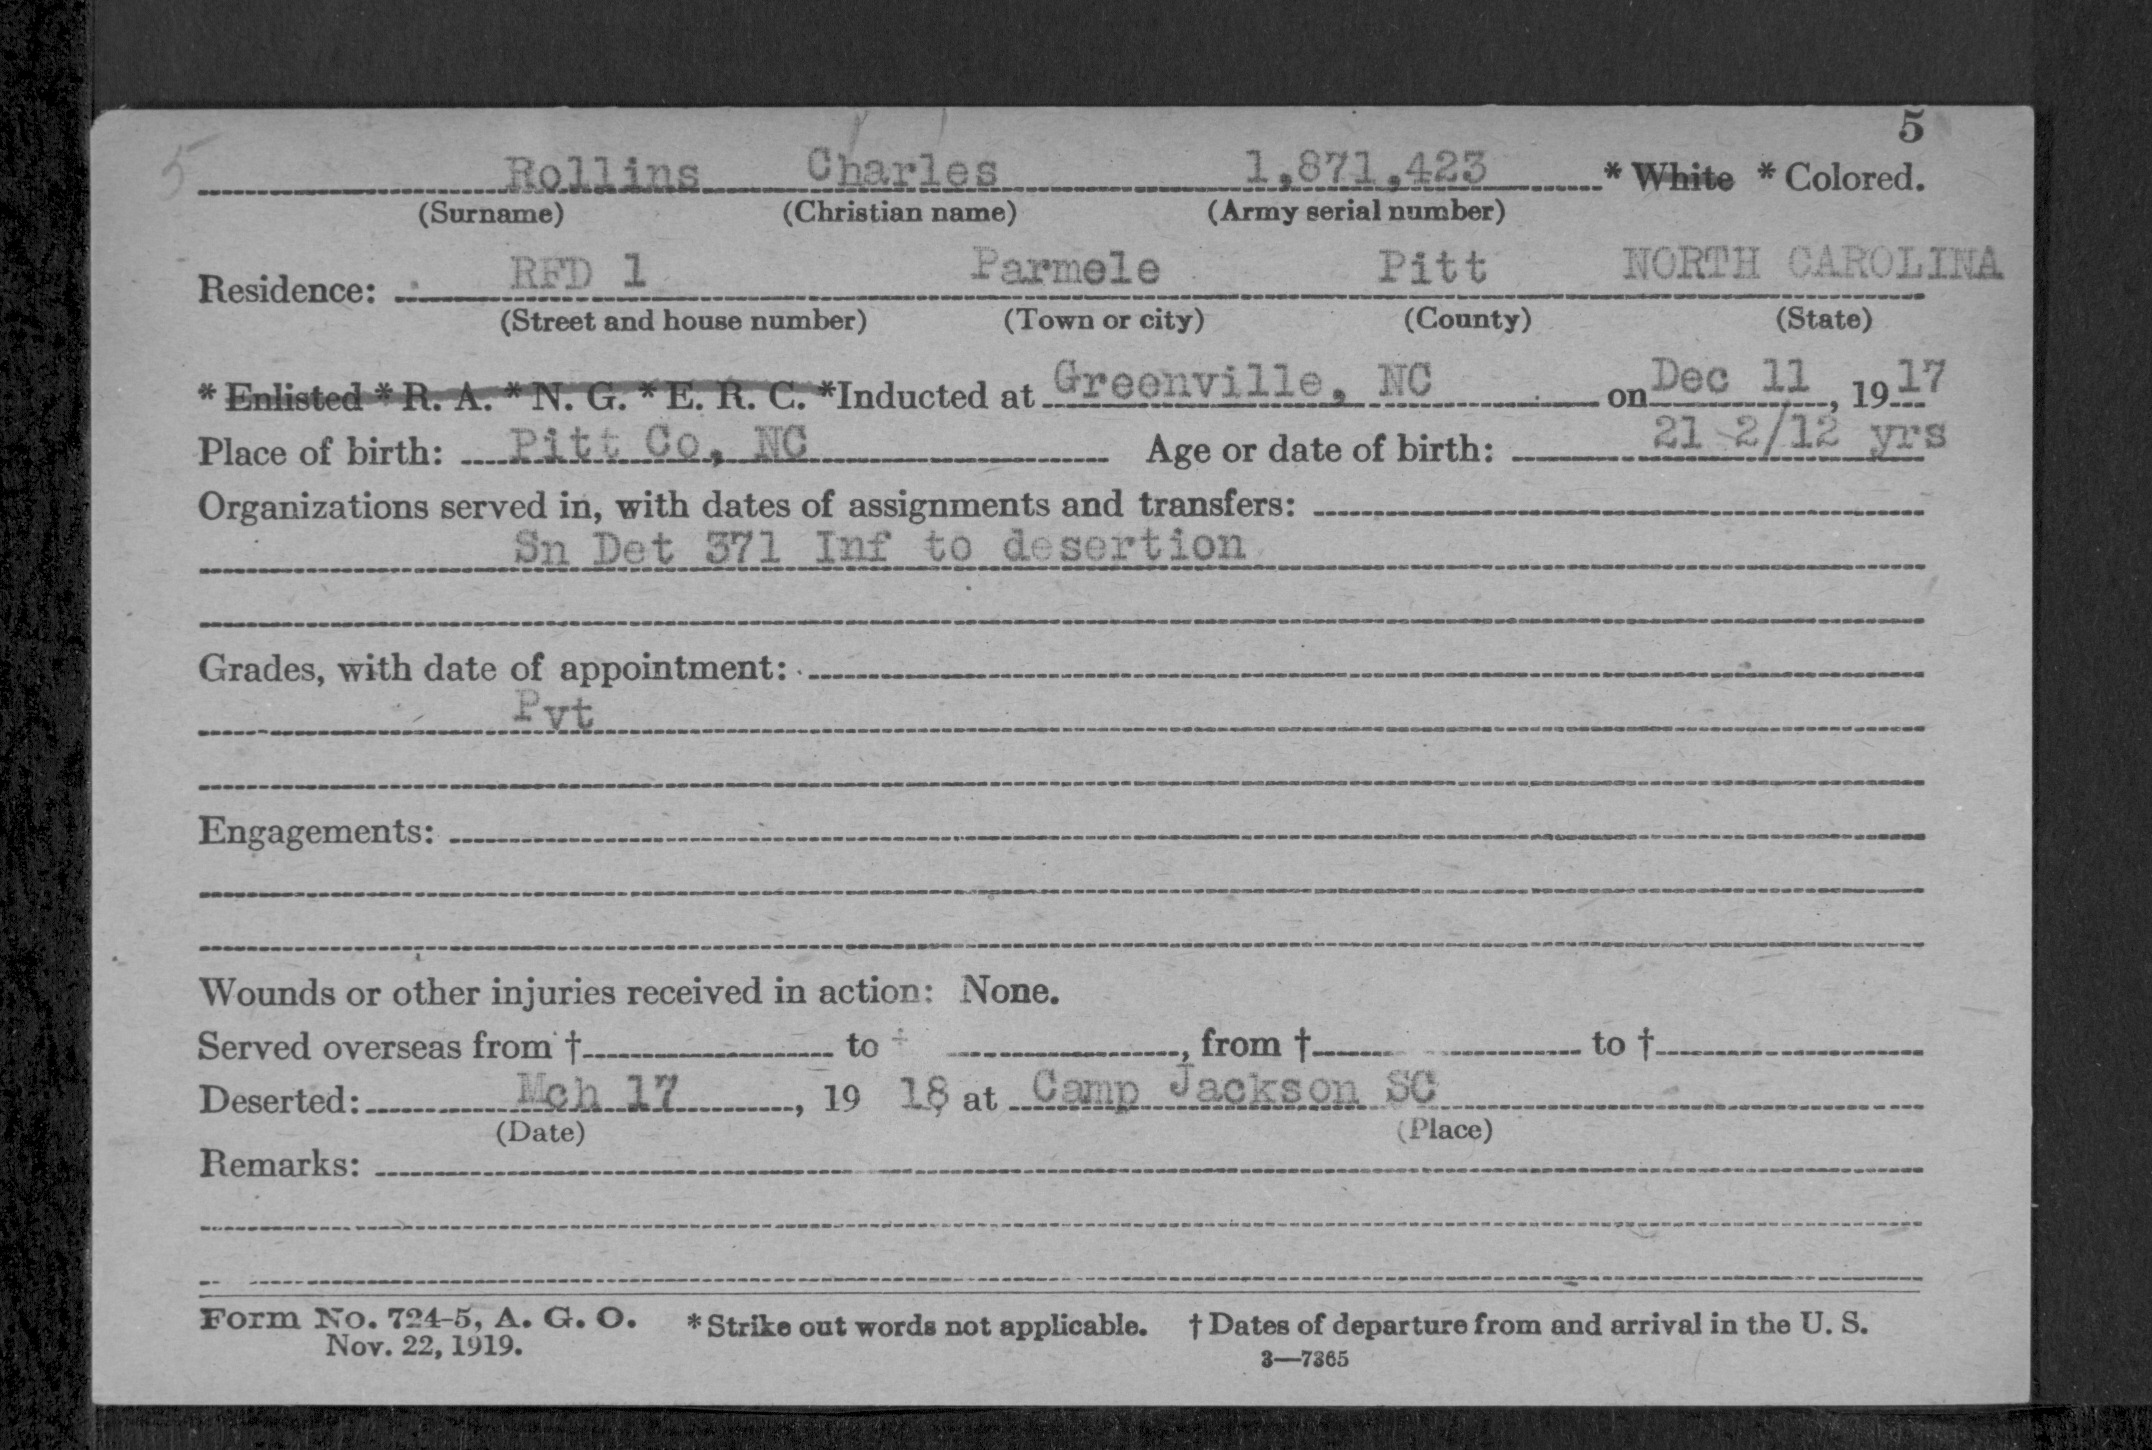 5
5 Rollins Charles 1,871,423 * White * Colored.
(Surname) (Christian name) (Army serial number)
RFD 1 Parmele Pitt NORTH CAROLINA
Residence:
(Street and house number) (Town or city) (County) (State)
* Enlisted * R. A. * N. G. * E. R. C. *Inducted at Greenville, NC on Dec 11, 1917
Place of birth: Pitt Co, NC Age or date of birth: 21 2/12 yrs
Organizations served in, with dates of assignments and transfers:
Sn Det 371 Inf to desertion
Grades, with date of appointment:
Pvt
Engagements:
Wounds or other injuries received in action: None.
Served overseas from † to †, from † to †
Deserted: Mch 17, 19 18 at Camp Jackson SC
(Date) (Place)
Remarks:
Form No. 724-5, A. G. O. * Strike out words not applicable. † Dates of departure from and arrival in the U. S.
Nov. 22, 1919. 3—7365